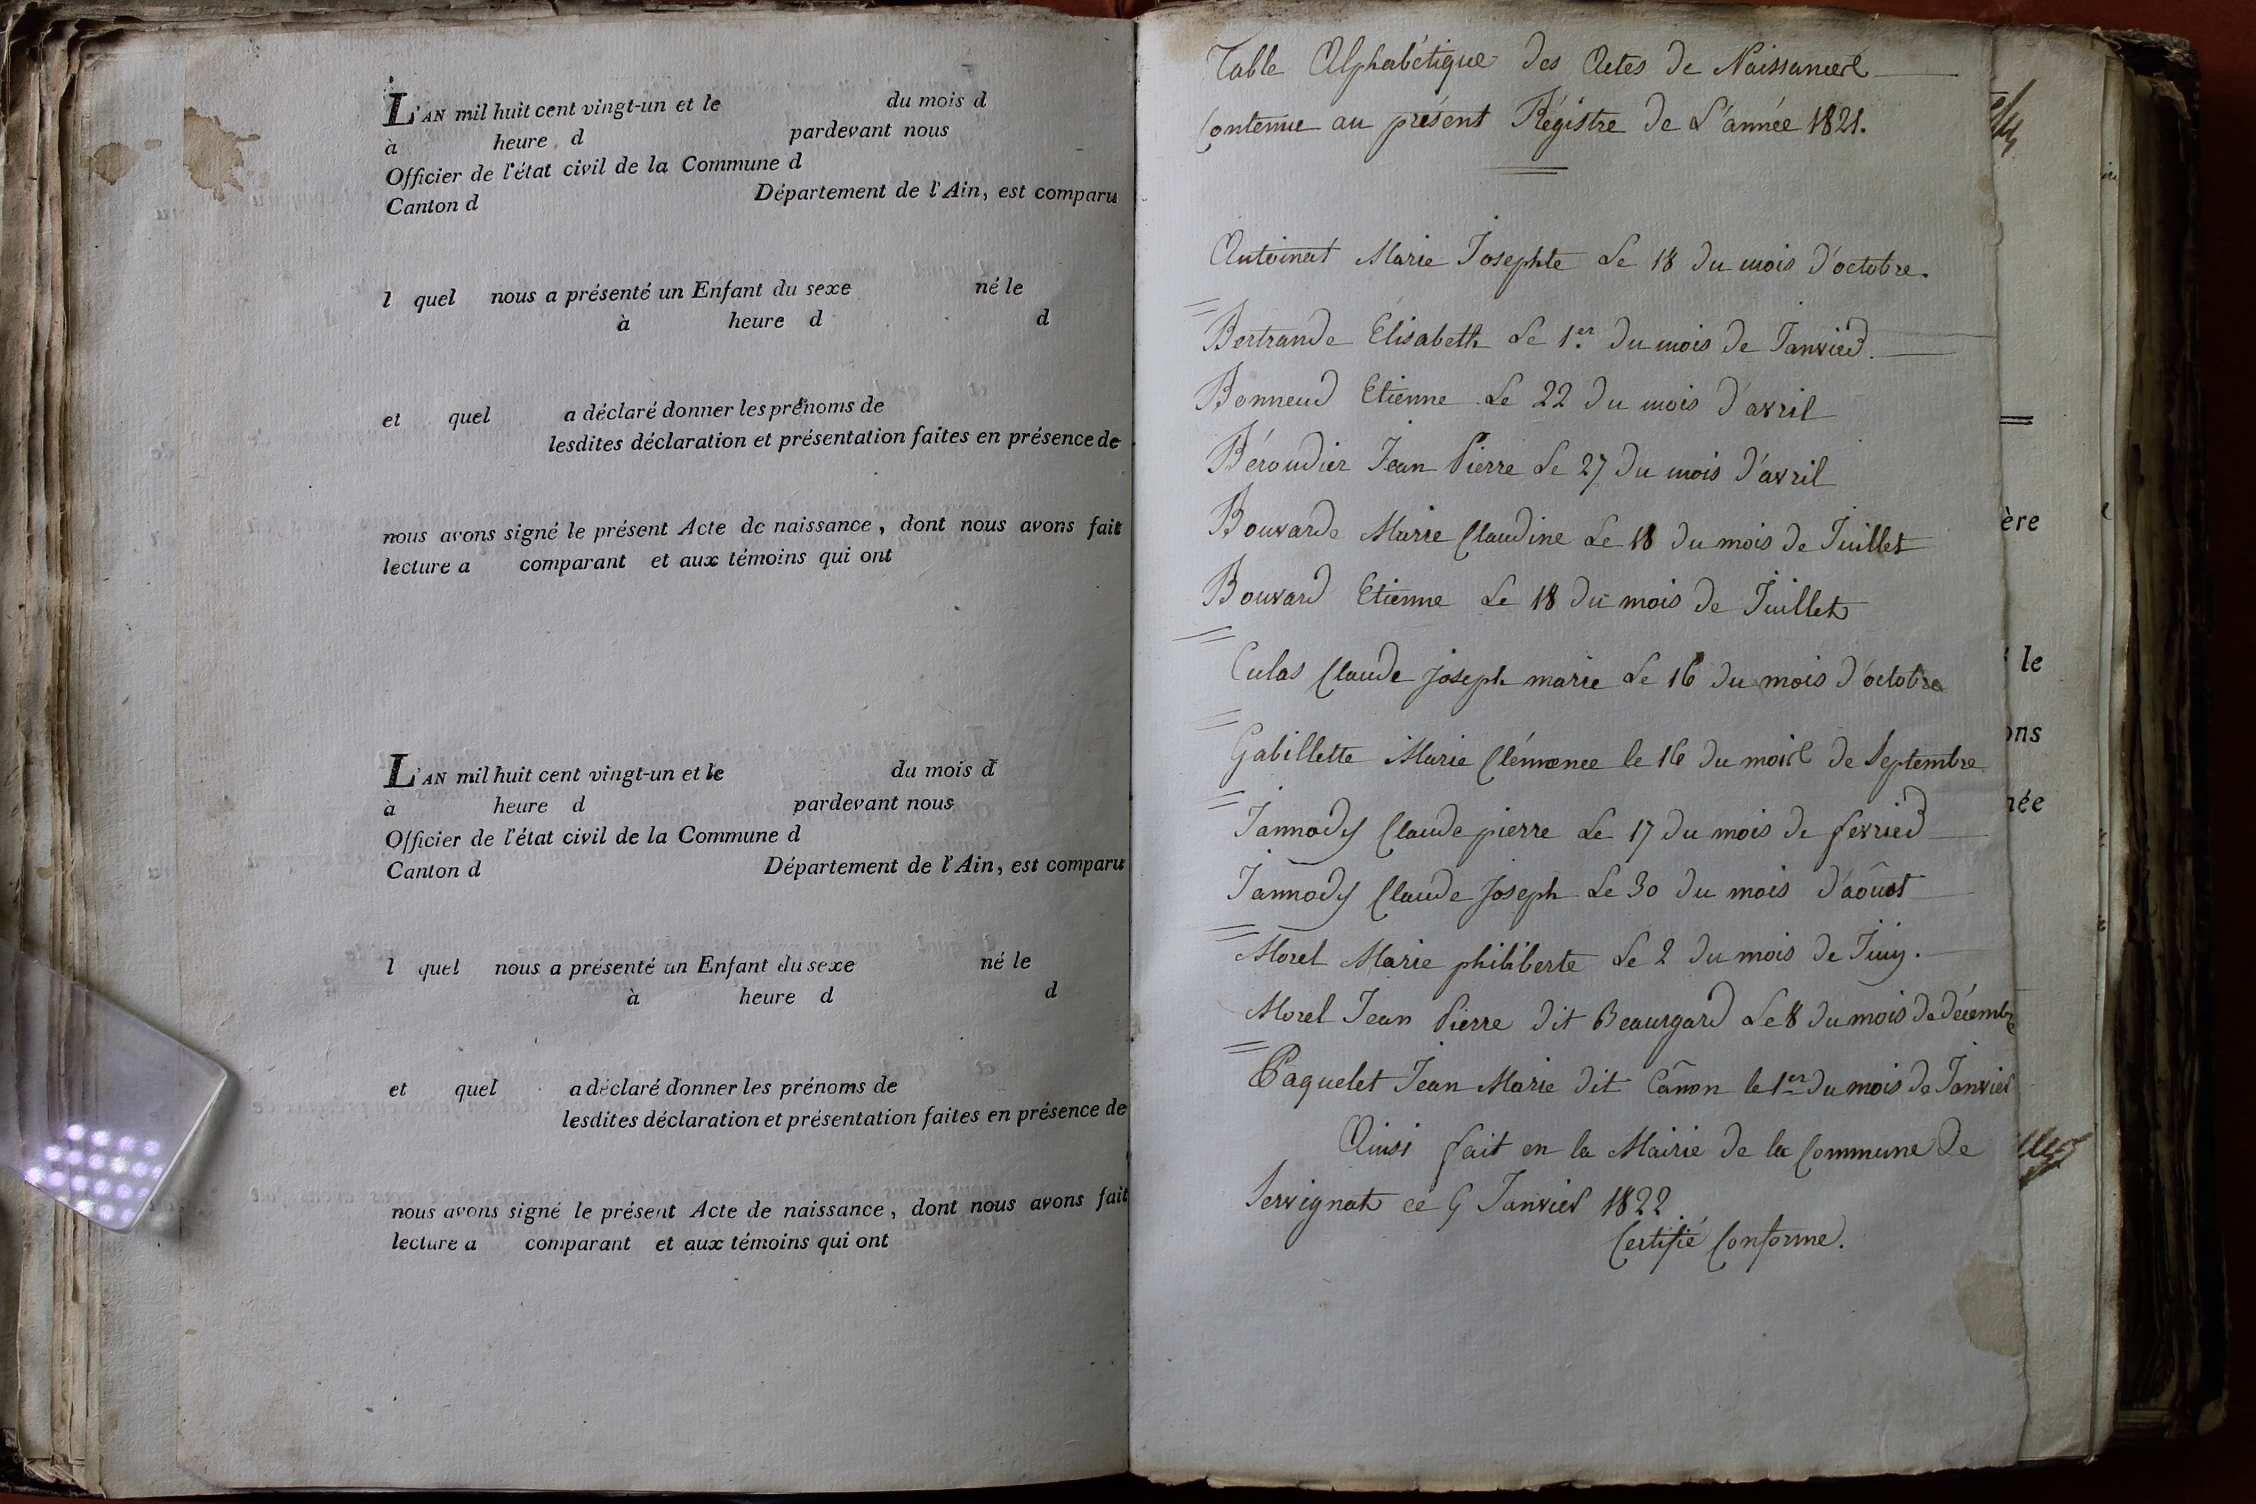 L'AN mil huit cent vingt-un et le du mois d
à heure d pardevant nous
Officier de l'état civil de la Commune d
Canton d Département de l'Ain, est comparu
l quel nous a présenté un Enfant du sexe né le
à heure d d
et quel a déclaré donner les prénoms de
lesdites déclaration et présentation faites en présence de
nous avons signé le présent Acte de naissance, dont nous avons fait
lecture a comparant et aux témoins qui ont
L'AN mil huit cent vingt-un et le du mois d
à heure d pardevant nous
Officier de l'état civil de la Commune d
Canton d Département de l'Ain, est comparu
l quel nous a présenté un Enfant du sexe né le
à heure d d
et quel a déclaré donner les prénoms de
lesdites déclaration et présentation faites en présence de
nous avons signé le présent Acte de naissance, dont nous avons fait
lecture a comparant et aux témoins qui ont
Table Alphabétique des Actes de Naissance
Contenue au présent Régistre de L'année 1821.
Antoinat Marie Josephte Le 18 du mois d'octobre.
Bertrande Élisabeth Le 1.er du mois de Janvier.
Bonneud Etienne Le 22 du mois d'avril
Béroudier Jean Pierre Le 27 du mois d'avril
Bouvarde Marie Claudine Le 18 du mois de Juillet
Bouvard Etienne Le 18 du mois de Juillet
Culas Claude Joseph marie Le 16 du mois d'octobre
Gabillette Marie Clémence le 16 du mois de Septembre
Jannody Claude pierre Le 17 du mois de fevrier
Jannody Claude Joseph Le 30 du mois d'aôust
Morel Marie philiberte Le 2 du mois de Juin.
Morel Jean Pierre dit Beaurgard Le 8 du mois de décembre
Paquelet Jean Marie dit Canon le 1er du mois de Janvier
Ainsi fait en la Mairie de la Commune de
Servignat ce Janvier 1822
Certifié Conforme.
ère
le
ons
née